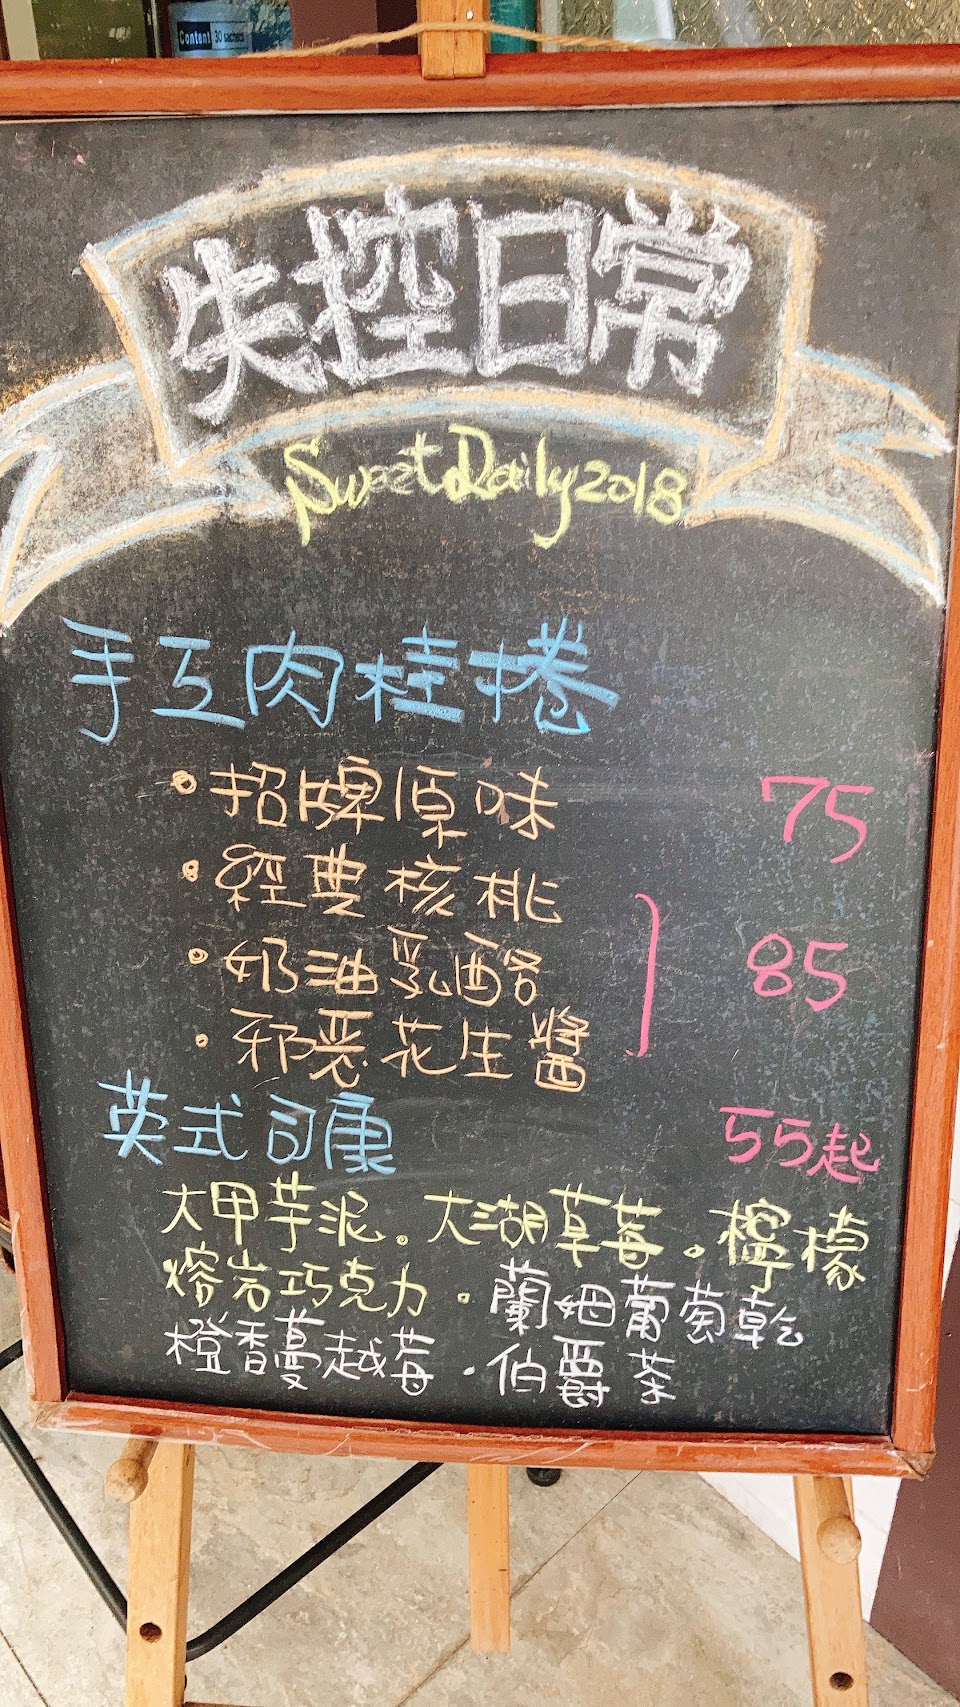 Content 30 sachets
失控日常
Sweet Daily 2018
手工肉桂捲
・招牌原味 75
・經典核桃
・奶油乳酪 85
・邪惡花生醬
英式司康 55起
大甲芋泥。大湖草莓。檸檬
熔岩巧克力。蘭姆葡萄乾
橙香蔓越莓・伯爵茶